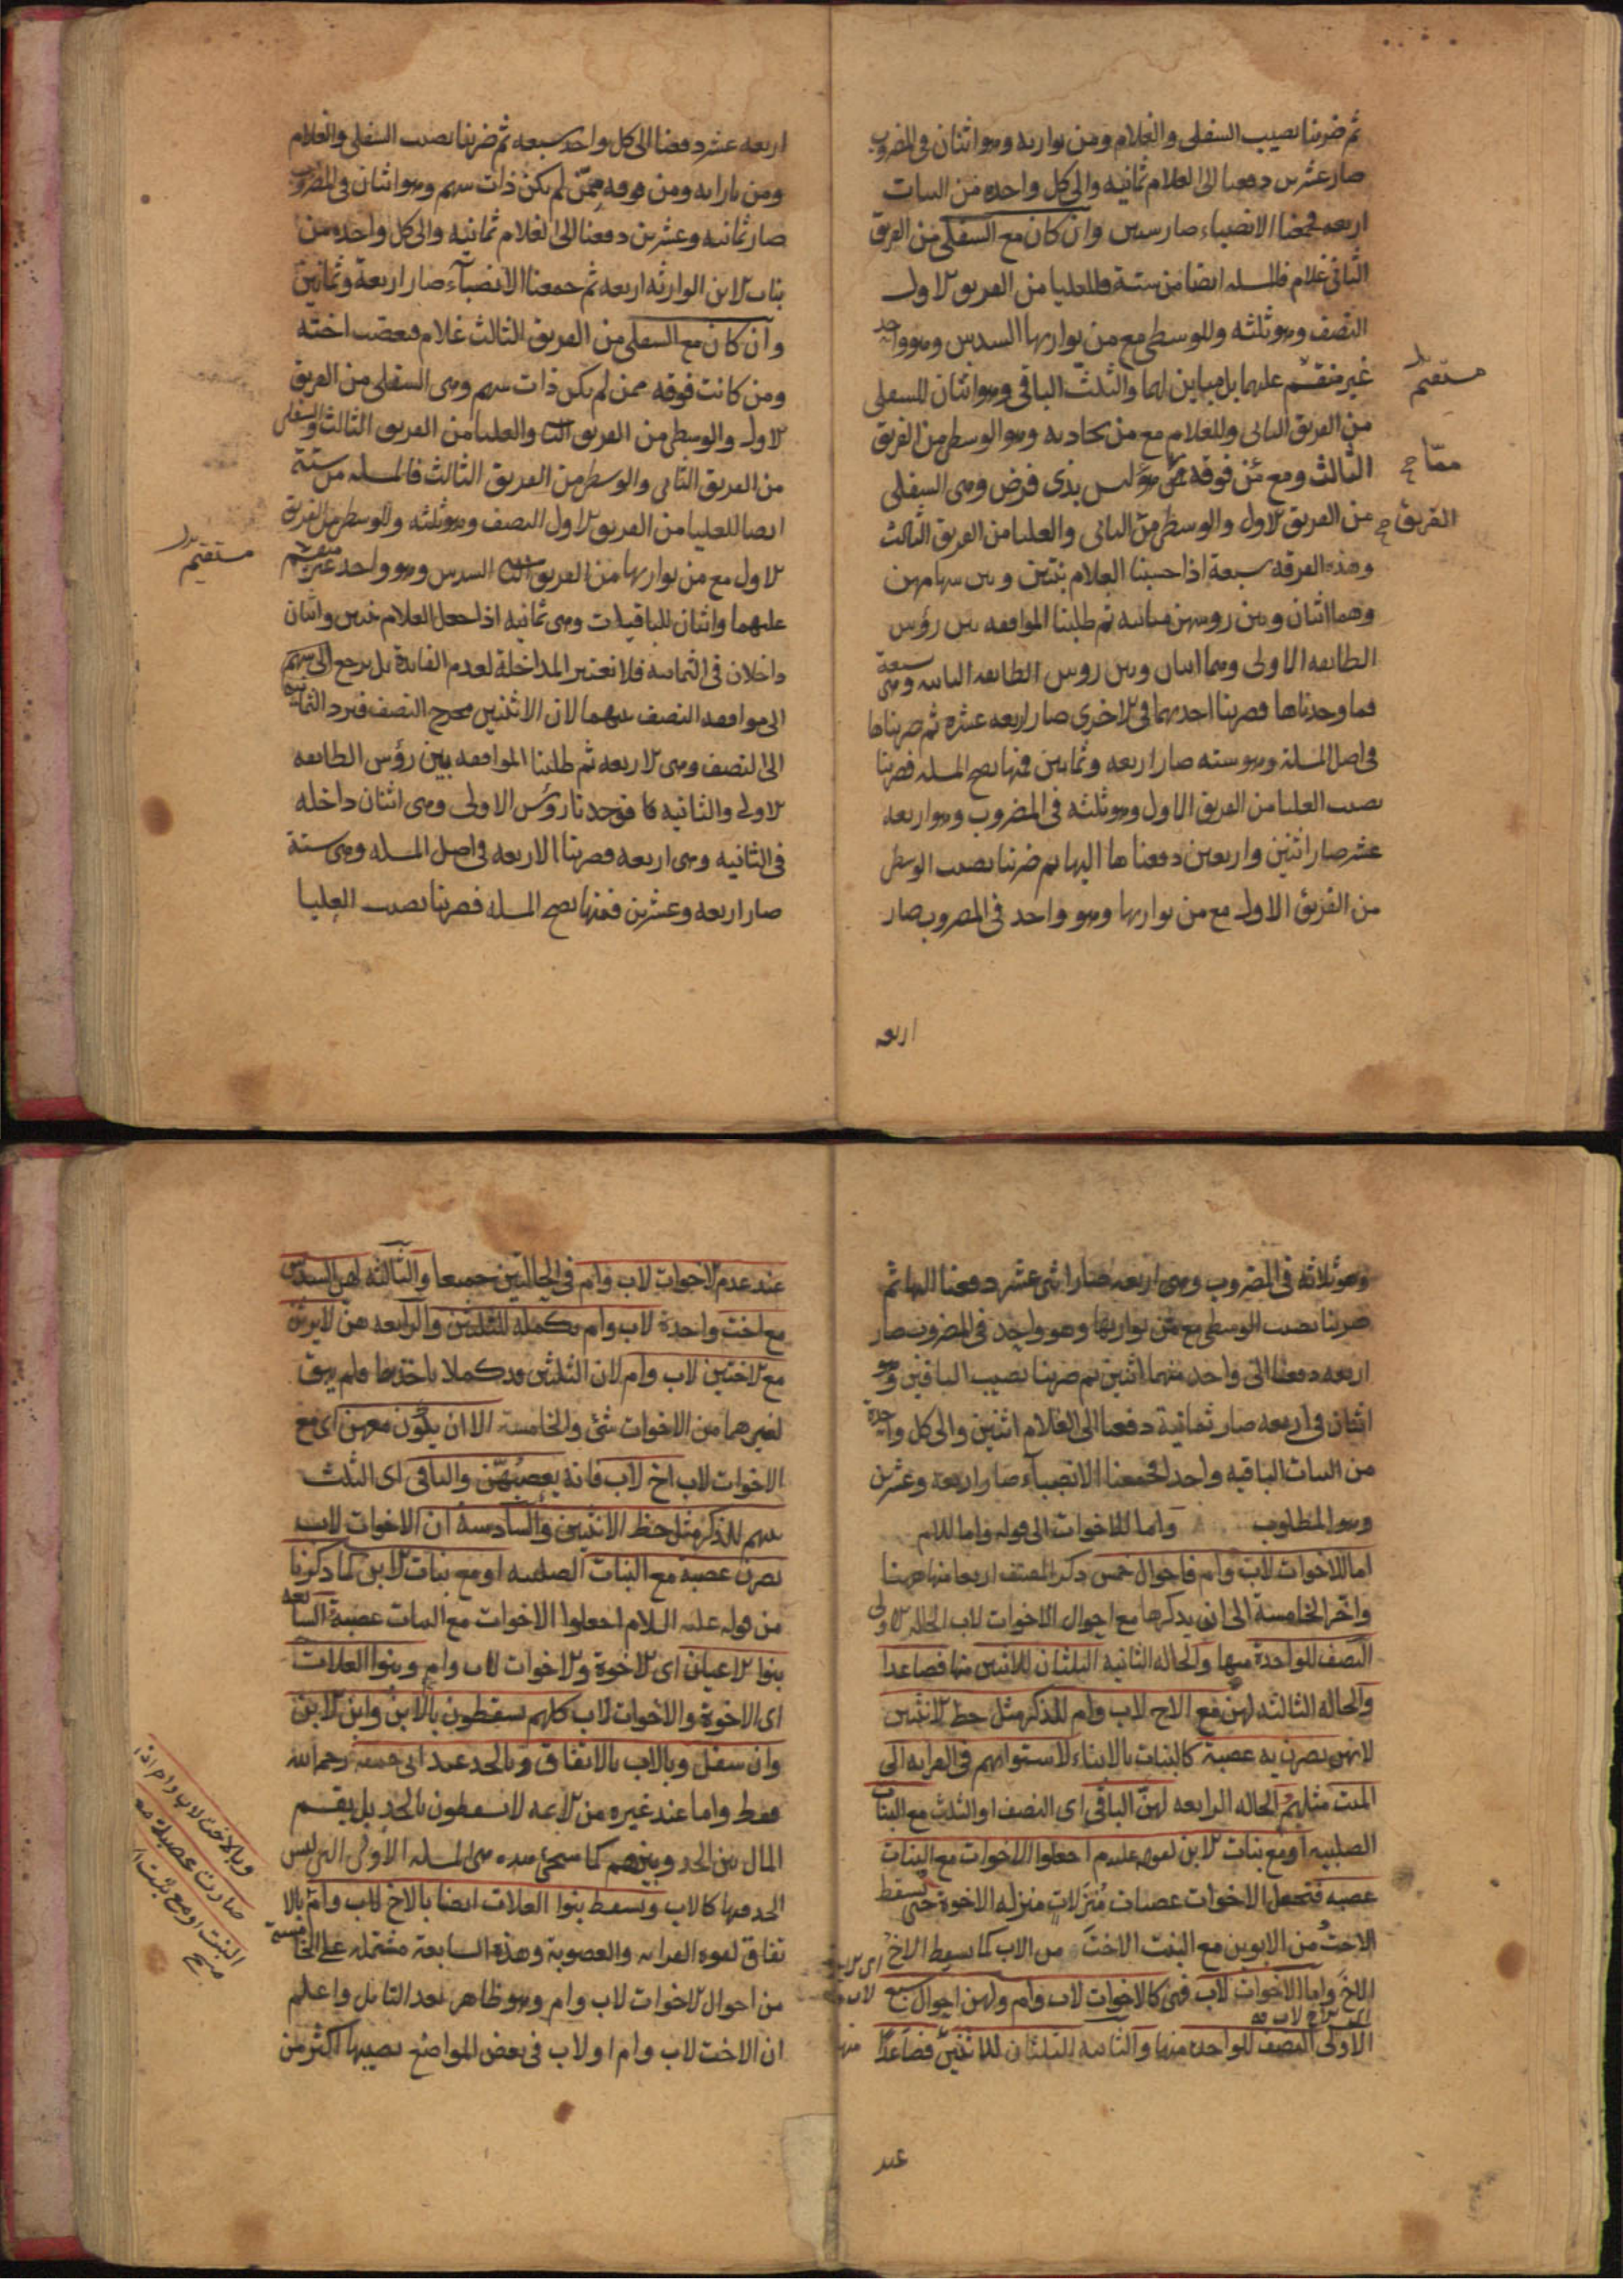 ثم ضربنا نصيب السفلى والغلام ومن يوازيه وهو اثنان في المضروب
صار عشرين دفعنا الى الغلام ثمانيه والى كل واحده من البنات
اربعه فجمعنا الانصباء صار ستين وان كان مع السفلى من الفريق
الثاني غلام فالمسله ايضا من ستة وللعليا من الفريق الاول
النصف وهو ثلثه وللوسطى مع من يوازيها السدس وهو واحد
غير منقسم عليهما بل مباين لهما والثلث الباقي وهو اثنان للسفلى
مستقيم
من الفريق الثاني وللغلام مع من يحاذيه وهو الوسطى من الفريق
الثالث ومع من فوقه ليس بذى فرض وهى السفلى
ممّا صح
من الفريق الاول والوسطى من الثاني والعليا من الفريق الثالث
الفريق صح
وهذه الفرقه سبعة اذا حسبنا الغلام بنتين وبين سهامهن
وهما اثنان وبين روسهن مباينه ثم طلبنا الموافقه بين رؤس
الطائفه الاولى وهما اثنان وبين روس الطائفه الثانيه وهى سبعة
فما وجدناها فضربنا احديهما في الاخرى صار اربعه عشره ثم ضربناها
في اصل المسلة وهو سته صار اربعه وثمانين فمنها تصح المسله فضربنا
نصيب العليا من الفريق الاول وهو ثلثه في المضروب وهو اربعه
عشر صار اثنين واربعين دفعناها اليها ثم ضربنا نصيب الوسطى
من الفريق الاول مع من يوازيها وهو واحد في المضروب صار
اربعه
اربعه عشر دفعنا الى كل واحد سبعه ثم ضربنا نصيب السفلى والغلام
ومن بازايه ومن فوقه ممن لم يكن ذات سهم وهو اثنان في المضروب
صار ثمانيه وعشرين دفعنا الى الغلام ثمانيه والى كل واحده من
بنات الابن الوارثه اربعه ثم جمعنا الانصباء صار اربعة وثمانين
وان كان مع السفلى من الفريق الثالث غلام فعصب اخته
ومن كانت فوقه ممن لم يكن ذات سهم وهى السفلى من الفريق
الاول والوسطى من الفريق والعليا من الفريق الثالث والسفلى
من الفريق الثاني والوسطى من الفريق الثالث فالمسله من ستة
ايضا للعليا من الفريق الاول النصف وهو ثلثه وللوسطى من الفريق
الاول مع من يوازيها من الفريق السدس وهو واحد غير منقسم
مستقيم
عليهما واثنان للباقيات وهى ثمانيه اذا جعل الغلام بنتين واثنان
داخلان في الثمانيه فلا نعتبر المداخلة لعدم الفايدة بل نرجع الى سهم
الى موافقه النصف بينهما لان الاثنين مخرج النصف فنرد الثمانيه
الى النصف وهى الاربعه ثم طلبنا الموافقه بين رؤس الطائفه
الاولى والثانيه فوجدنا رؤس الاولى وهى اثنان داخله
في الثانيه وهى اربعه فضربنا الاربعه في اصل المسله وهى ستة
صار اربعه وعشرين فمنها تصح المسله فضربنا نصيب العليا
وهو ثلاثه في المضروب وهى اربعه صار اثنى عشر دفعنا اليها ثم
ضربنا نصيب الوسطى مع من يوازيها وهو واحد في المضروب صار
اربعه دفعنا الى واحد منهما اثنين ثم ضربنا نصيب الباقين وهو
اثنان في اربعه صار ثمانية دفعنا الى الغلام اثنين والى كل واحدة
من البنات الباقيه واحدا فجمعنا الانصباء صار اربعة وعشرين
وهو المطلوب واما للاخوات الى قوله واما للام
اما للاخوات لاب وام فاحوال خمس ذكر المصنف اربعا منها ههنا
واخر الخامسة الى ان يذكرها مع احوال الاخوات لاب الحاله الاولى
النصف للواحدة منها والحاله الثانيه الثلثان للاثنين منها فصاعدا
والحاله الثالثه لهن مع الاخ لاب وام للذكر مثل حظ الانثيين
لانهن يصرن به عصبة كالبنات بالابناء لاستوائهم في القرابه الى
الميت مثلهم الحاله الرابعه لهن الباقي اى النصف او الثلث مع البنات
الصلبيه او مع بنات الابن لقوله عليه م اجعلوا الاخوات مع البنات
عصبه فتجعل الاخوات عصبات مُنزلاتٍ منزله الاخوة حتى يسقط
الاختُ من الابوين مع البنت الاختَ من الاب كما يسقط الاخُ
الاخَ واما الاخوات لاب فهى كالاخوات لاب وام ولهن احوال سبع
الاولى النصف للواحده منها والثانيه الثلثان للاثنين فصاعدا منها
عند
عند عدم الاخوات لاب وام في الحالتين جميعا والثالثه لهن السدس
مع اخت واحدة لاب وام تكملة للثلثين والرابعه هن لا يرثن
مع الاختين لاب وام لان الثلثين قد كملا باختهما فلم يبق
لغيرهما من الاخوات شئ والخامسة الا ان يكون معهن اى مع
الاخوات لاب اخ لاب فانه يعصبهن والباقي اى الثلث
بينهم للذكر مثل حظ الانثيين والسادسة ان الاخوات لاب
يصرن عصبة مع البنات الصلبيه او مع بنات الابن كما ذكرنا
من قوله عليه السلام اجعلوا الاخوات مع البنات عصبة السابعه
بنوا الاعيان اى الاخوة والاخوات لاب وام وبنوا العلات
اى الاخوة والاخوات لاب كلهم يسقطون بالابن وابن الابن
وان سفل وبالاب بالاتفاق وبالجد عند ابى حنيفه رحمه الله
فقط واما عند غيره من الائمه لا يسقطون بالجد بل يقسم
المال بين الجد وبينهم كما سيجئ المسله الاولى التى ليس
الجد فيها كالاب ويسقط بنوا العلات ايضا بالاخ لاب وام بالا
تفاق لقوه القرابه والعصوبة وهذه السابعة مشتمله على الخامسة
من احوال الاخوات لاب وام وهو ظاهر بعد التامل واعلم
ان الاخت لاب وام او لاب في بعض المواضع نصيبها اكثر من
وبالاخت لاب وام اذا
صارت عصبة مع
البنت او مع بنت ا
صح